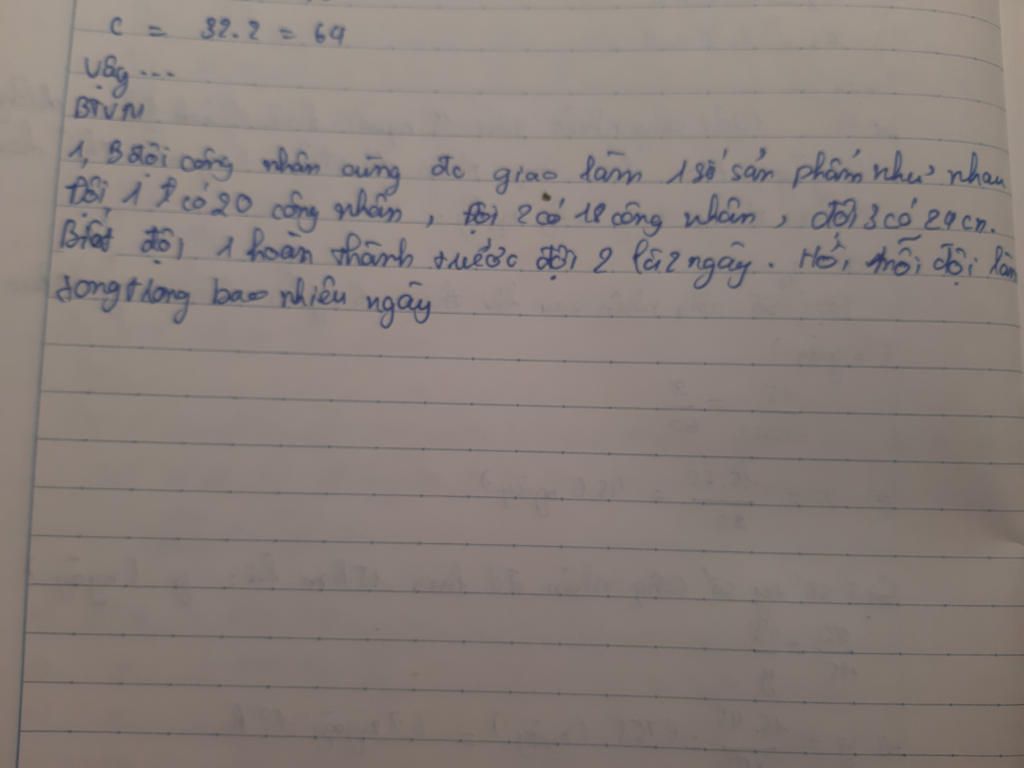 c = 32.2 = 64
Vậy ...
BTVN
1, 3 đội công nhân cùng đc giao làm 1 số sản phẩm như nhau
Đội 1 có 20 công nhân, Đội 2 có 18 công nhân, đội 3 có 24 cn.
Biết đội 1 hoàn thành trước đội 2 là 2 ngày. Hỏi mỗi đội làm
xong trong bao nhiêu ngày